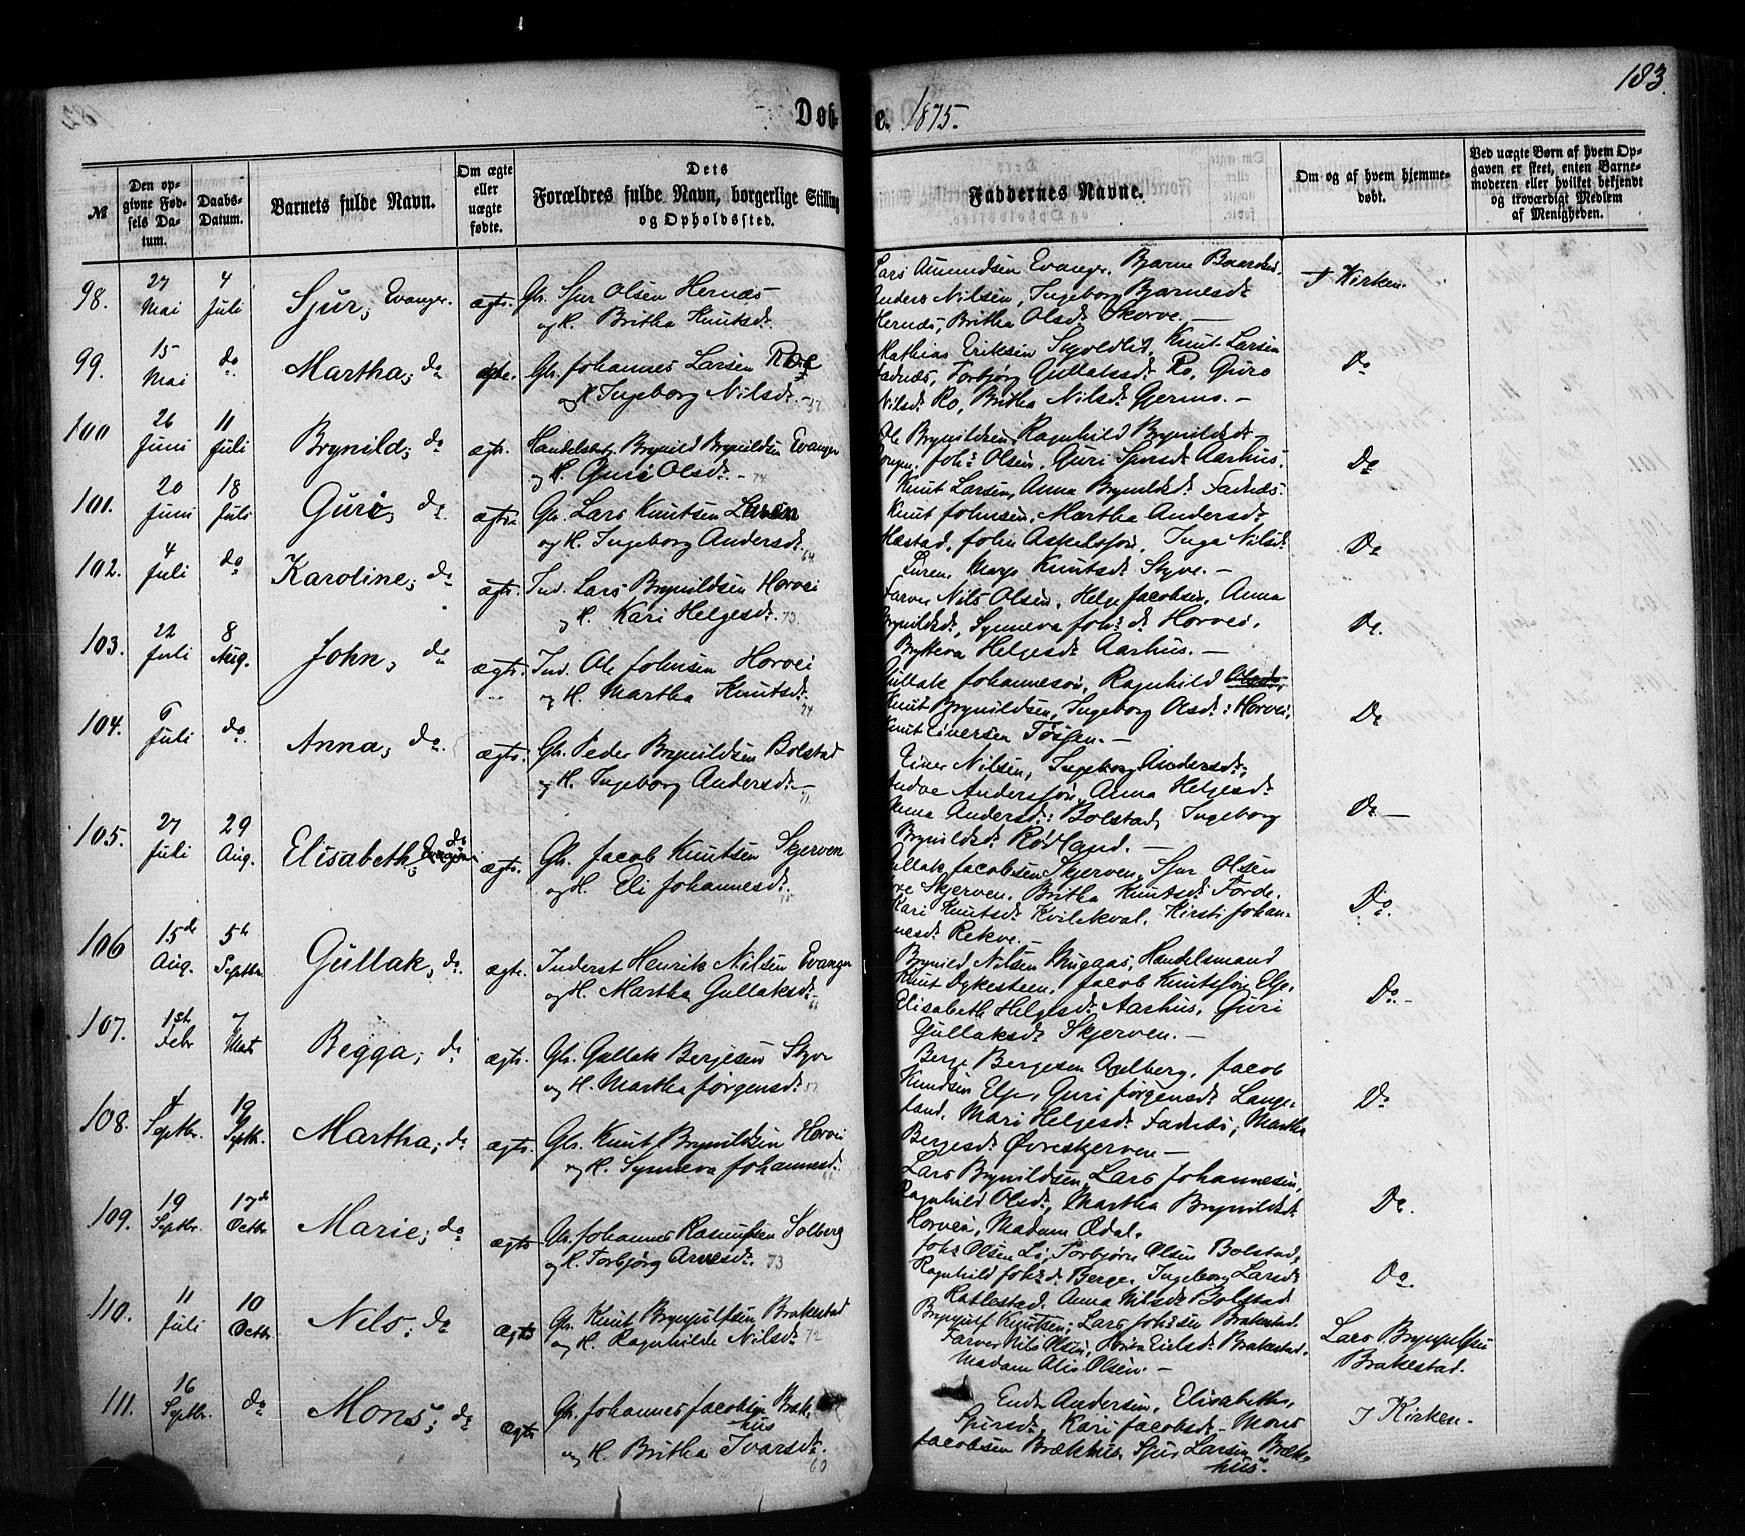 183.
Døbte. 1875.
№
Den opgivne Fødsels Datum.
Daabs-Datum.
Barnets fulde Navn.
Om ægte eller uægte fødte.
Dets Forældres fulde Navn, borgerlige Stilling og Opholdssted.
Faddernes Navne.
Om og af hvem hjemmedøbt.
Ved uægte Børn af hvem Opgaven er skeet, enten Barnemoderen eller hvilket bekjendt og troværdigt Medlem af Menigheden.
98. 27 Mai 4 Juli Sjur, Evanger. ægte. Gb. Sjur Olsen Hernæs
og H. Britha Knutsdr.
Lars Amundsen Evanger, Bjarne
Anders Nilsen, Ingeborg Bjarnesdr
Hernæs, Britha Olsdr Skorve.—
I Kirken.
99. 15 Mai do Martha, do ægte. Gb. Johannes Larsen
og H. Ingeborg Nilsdr.— 37
Mathias Eriksen, Knut Larsen
Fadnæs, Torbjørg Gullaksdr Ro, Guro
Nilsdr Ro, Britha Nilsdr Gjerme.—
Do
100 26 Juni 11 Juli Brynild, do ægte. Brynild Brynildsen Evanger
og H. Guri Olsdr.- 74
Ole Brynildsen, Ragnhild Brynildsdr
Joh: Olsen, Guri Aarhus.
Knut Larsen, Anna Brynildsdr Fadnæs.
Do
101. 20 Juni 18 Juli Guri, do ægte Gb. Lars Knutsen
og H. Ingeborg Andersdr. 64
Knut Johnsen, Martha Andersdr
Mæstad, John Askelsson, Inga Nilsdr
Knutsdr Styve.—
Do
102. 4 Juli do Karoline, do ægte. Ind. Lars Brynildsen Horvei
og H. Kari Helgesdr. 73
Farver Nils Olsen, Helge Jacobsen, Anna
Brynildsdr, Synneva Joh:dr Horvei,
Helgesdr Aarhus.—
Do.
103. 22 Juli 8 Aug. John, do ægte. Ind. Ole Johnsen Horvei
og H. Martha Knutsdr. 24
Gullak Johannesøn, Ragnhild Olsdr,
Knut Brynildsen, Ingeborg Olsdr: Horvei,
Knut Iversen
Do
104. 6 Juli do. Anna, do. ægte. Gb. Peder Brynildsen Bolstad
og H. Ingeborg Andersdr.— 71.
Einer Nilsen, Ingeborg Andersdr,
Andersson, Anna Helgesdr
Anna Andersdr: Bolstad, Ingeborg
Brynildsdr Rødland.—
Do—
105. 27 Juli 29 Aug. Elisabeth, do ægte. Gb. Jacob Knutsen Skjerven
og H. Eli Johannesdr. 75.
Gullak Jacobsen Skjerven, Sjur Olsen
Skjerven, Britha Knutsdr Førde.
Kari Knutsdr Kvilekval. Kirsti Johan-
nesdr Rekve.—
Do.
106 15de Aug. 5te Septbr. Gullak, do ægte. Inderst Henrik Nilsen Evanger
og H. Martha Gullaksdr.
Brynild Nilsen Muggaas, Handelsmand
Knut Dykesteen, Jacob Knutsson
Elisabeth Helgesdr Aarhus, Guri
Gullaksdr Skjerven.—
Do.-
107. 1ste Febr 7 Marts Begga, do ægte. Gb. Gullak Bergesen Styve
og H. Martha Jørgensdr. 52
Berge Bergesen Aalberg, Jacob
Knudsen, Guri Jørgensdr Lange-
land, Mari Helgesdr Fadnæs, Martha
Bergesdr Øvreskjerven—
Do
108. 4 Septbr. 19 Septbr. Martha, do ægte. Gb. Knut Brynildsen Horvei
og H. Synneva Johannesdr.
Lars Brynildsen, Lars Johannesen,
Ragnhild Olsdr, Martha Brynildsdr
Horvei, Madam Ødal.
Do.
109. 19 Septbr. 17de Octbr. Marie, do ægte Gb. Johannes Rasmussen Solberg
og H. Torbjørg Arnesdr. 73
Joh: Olsen Li, Torbjørn Olsen Bolstad,
Ragnhild Joh:dr Berge, Ingeborg Larsdr
Katlestad, Anna Nilsdr Bolstad
Do.
110. 11 Juli 10 Octbr. Nels, do ægte Gb. Knut Brynjulfsen Brakestad
og H. Ragnhilde Nilsdr 72
Brynjulf Knutsen, Lars Joh:sen Brakestad.
Farver Nils Olsen, Brakestad.
Madam Olsen.—
Lars Brynjulfsen
Brakestad.
111. 16 Septbr. do Mons, do ægte Gb. Johannes Jacobsen Bræk-
hus
og H. Britha Ivarsdr. 60
Endre Andersen, Elisabeth
Kari Jacobsdr, Mons
Jacobsen Brækhus, Sjur Larsen Bræk-
hus.
I Kirken.